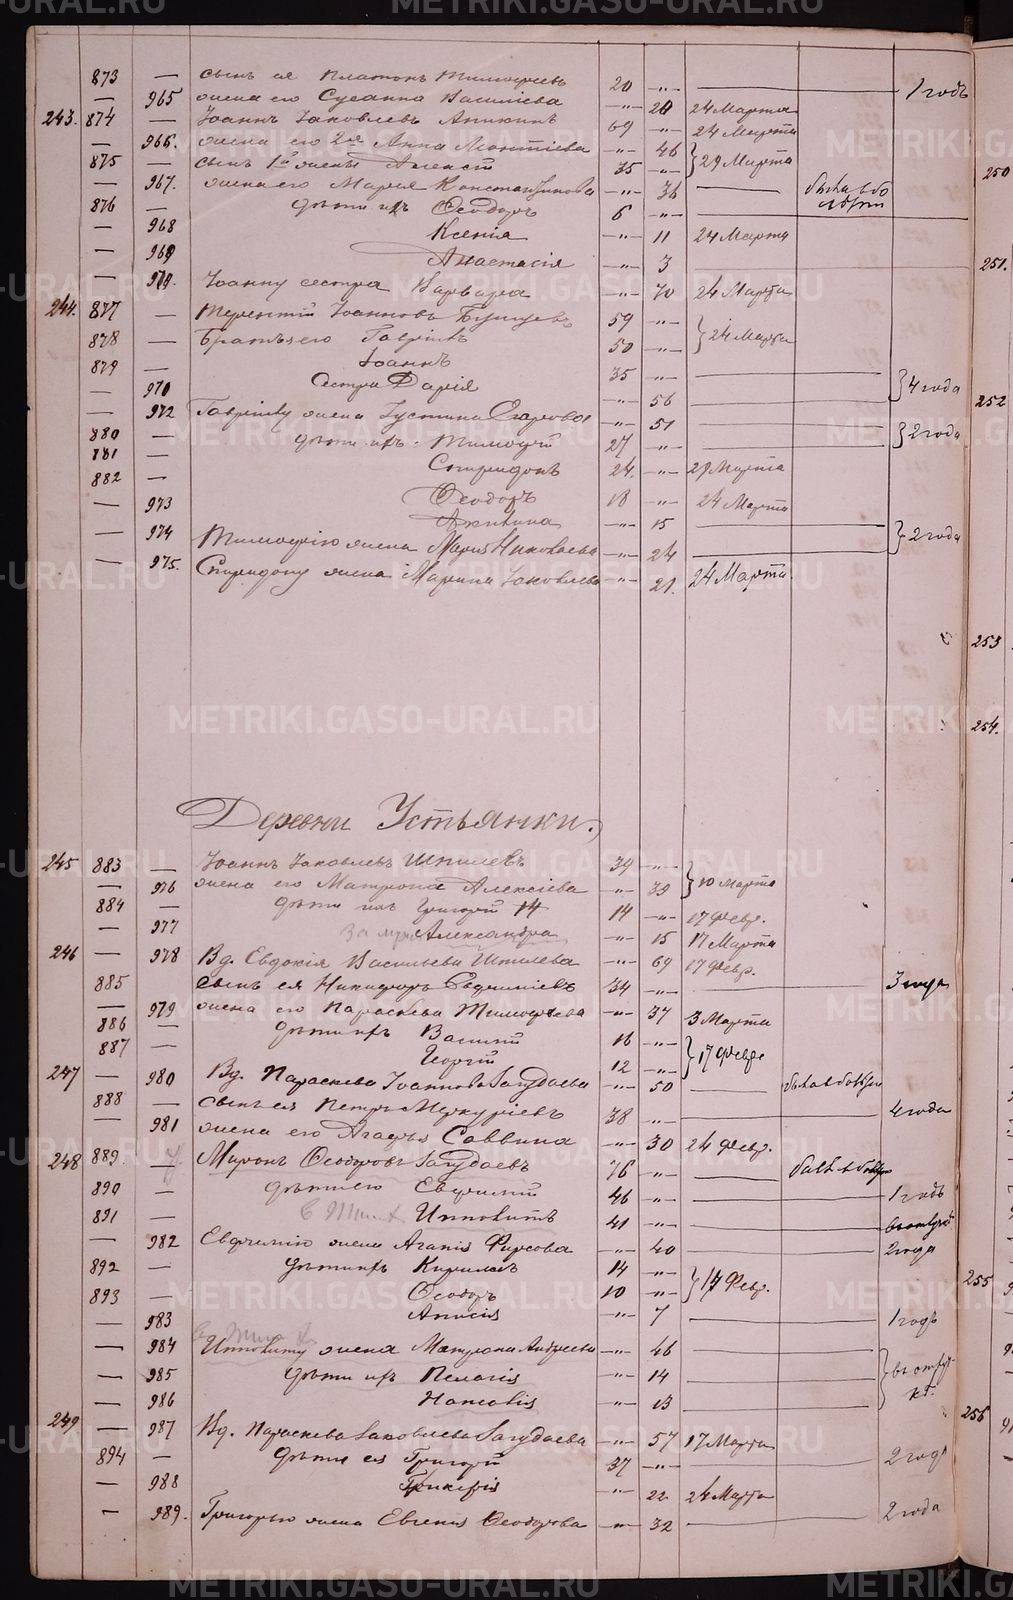 873 — сынъ ея Платонъ Тимофеевъ 20 -„- 1 годъ
— 965 жена его Сусанна Василиева -„- 20 24 Марта
243. 874 — Іоаннъ Іаковлевъ Аникинъ 69 -„- 24 Марта
— 966. жена его 2ая Анна Леонтіева -„- 46
875 — сынъ 1й жены Алексей 35 -„- 29 Марта
— 967. жена его Мария Константинова -„- 36 была в бо
876 — дѣти ихъ Ѳеодоръ 6 -„-
— 968 Ксенія -„- 11 24 Марта
— 969 Анастасія -„- 3
— 970. Іоанну сестра Варвара -„- 70 24 Марта
244. 877 — Терентій Іоанновъ 59 -„-
878 — Братья его Гавріилъ 50 -„- 24 Марта
879 — Іоаннъ 35 -„-
— 970 Сестра Дарія -„- 56 4 года
— 972 Гавріилу жена Іустина Егорова -„- 51
880 — дѣти ихъ: Тимофей 27 -„- 2 года
881 — Спиридонъ 24. -„- 29 Марта
882 — Ѳеодоръ 18 -„- 24 Марта
— 973 Акилина -„- 15
— 974 Тимофею жена Мария Николаева -„- 24 2 года
— 975. Спиридону жена Марина Іаковлева -„- 21. 24 Марта
Деревни Устьянки.
245 883 — Іоаннъ Іаковлевъ Шпилевъ 39 -„-
— 976 жена его Матрона Алексіева -„- 39 10 Марта
884 — дѣти ихъ Григорій 14 14 -„- 17 Февр.
— 977 Александра -„- 15 17 Марта
246 — 978 Вд. Евдокія Васильева Шпилева -„- 69 17 Февр.
885 — сынъ ея Никифоръ Евфиміевъ 34 -„- 3 года
— 979 жена его Параскева Тимофеева -„- 37 3 Марта
886 — дѣти ихъ Василій 16 -„-
887 — Георгій 12 -„- 17 Февр
247 — 980 Вд. Параскева Іоаннова Загудаева -„- 50
888 — сынъ ея Петръ Меркуріевъ 38 -„- 4 года
— 981 жена его Агафья Саввина -„- 30 24 Февр.
248 889. — Миронъ Ѳеодоровъ Загудаевъ 76 -„-
890 — дѣти его Евфимій 46 -„- 1 годъ
891 — Ипполитъ 41 -„-
— 982 Евфимію жена Агапія Фирсова -„- 40 2 года
892 — дѣти ихъ Кириллъ 14 -„-
893 — Ѳеодоръ 10 -„- 17 Февр.
— 983 Анисія -„- 7 1 годъ
— 984 Ипполиту жена Матрона Андреева -„- 46
— 985 дѣти ихъ Пелагія -„- 14
— 986 Наталія -„- 13
249 — 987 Вд. Параскева Іаковлева Загудаева -„- 57 17 Марта
894 — дѣти ея Григорій 37 -„- 2 года
— 988 -„- 22 24 Марта
— 989. Григорью жена Евгенія Ѳеодорова -„- 32 2 года
250
251.
252
253
254.
255
256
METRIKI.GASO-URAL.RU